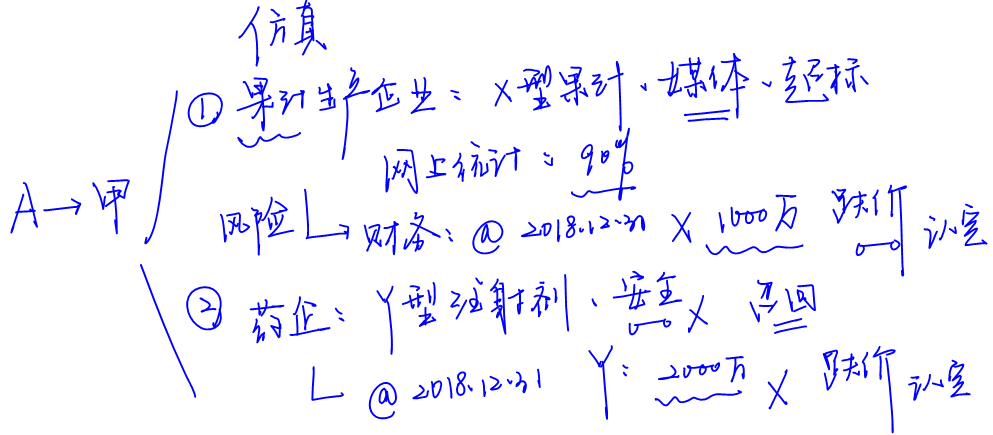 仿真
① 果汁生产企业：X型果汁、媒体、超标
网上统计：90%
A→甲
风险 ↳财务：@ 2018.12.31 X 1000万 跌价 认定
② 药企：Y型注射剂、安全 X 召回
@ 2018.12.31 Y：2000万 X 跌价 认定